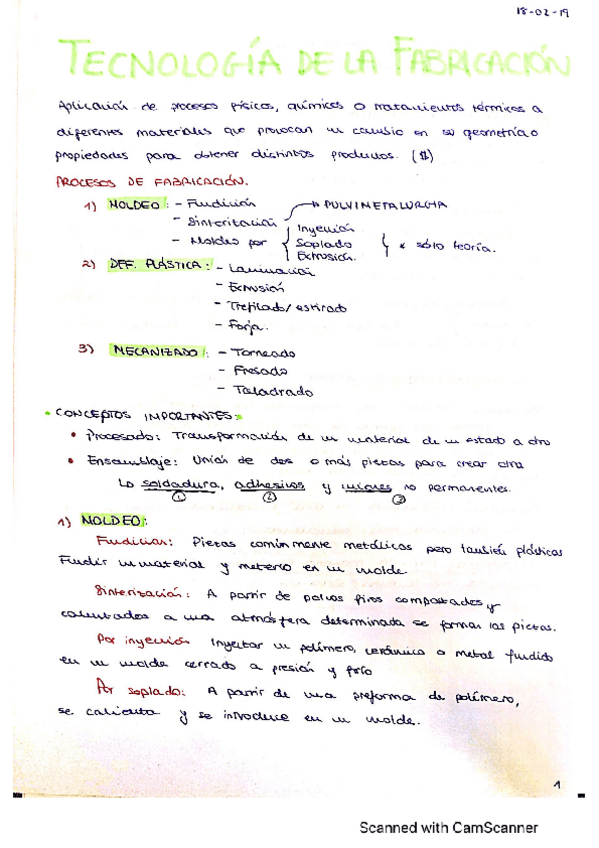 18-02-19
TECNOLOGÍA DE LA FABRICACIÓN
Aplicación de procesos físicos, químicos o tratamientos térmicos a
diferentes materiales que provocan un cambio en su geometría o
propiedades para obtener distintos productos.
PROCESOS DE FABRICACIÓN.
1) MOLDEO: - Fundición
- Sinterización → PULVIMETALURGIA
- Moldeo por { Inyección
Soplado
Extrusión. } * sólo teoría.
2) DEF. PLÁSTICA: - Laminación
- Extrusión
- Trefilado/estirado
- Forja.
3) MECANIZADO: - Torneado
- Fresado
- Taladrado
• CONCEPTOS IMPORTANTES:
• Procesado: Transformación de un material de un estado a otro
• Ensamblaje: Unión de dos o más piezas para crear otra
↳ soldadura, adhesivos y uniones no permanentes.
① ② ③
1) MOLDEO:
Fundición: Piezas comúnmente metálicas pero también plásticas
Fundir un material y meterlo en un molde.
Sinterización: A partir de polvos finos compactados y
calentados a una atmósfera determinada se forman las piezas.
Por inyección Inyectar un polímero, cerámico o metal fundido
en un molde cerrado a presión y frío
Por soplado: A partir de una preforma de polímero,
se calienta y se introduce en un molde.
1
Scanned with CamScanner